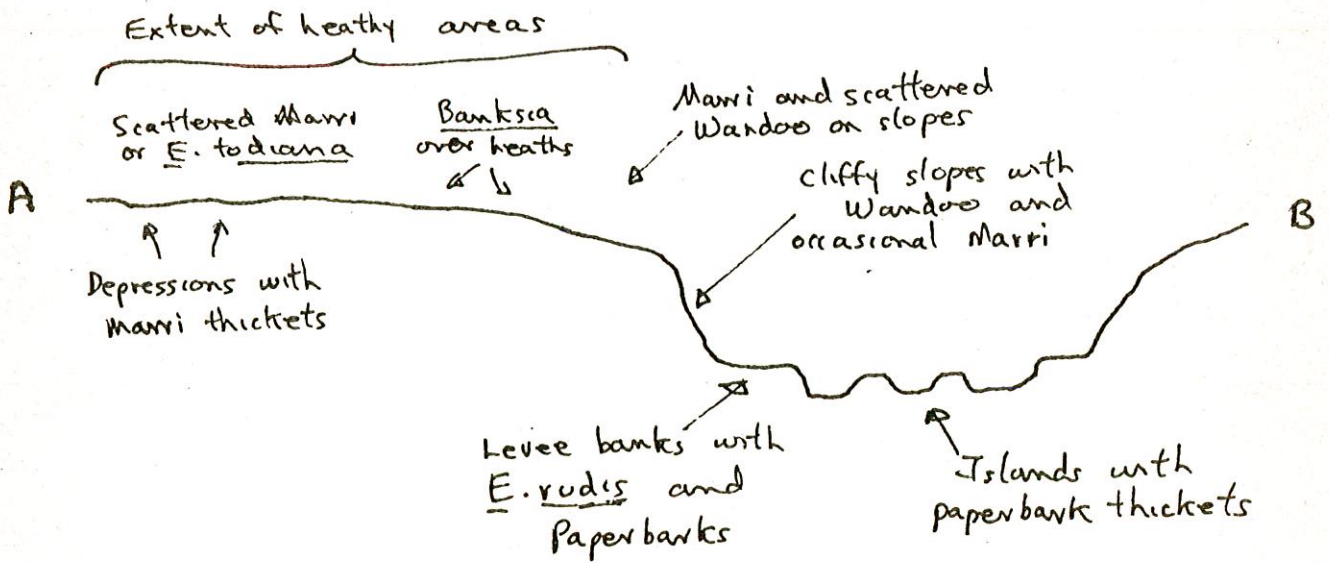 Extent of heathy areas
Scattered Marri
or E. todiana
Banksia
over heaths
Marri and scattered
Wandoo on slopes
Cliffy slopes with
Wandoo and
occasional Marri
A
B
Depressions with
Marri thickets
Levee banks with
E. rudis and
Paperbarks
Islands with
paperbark thickets